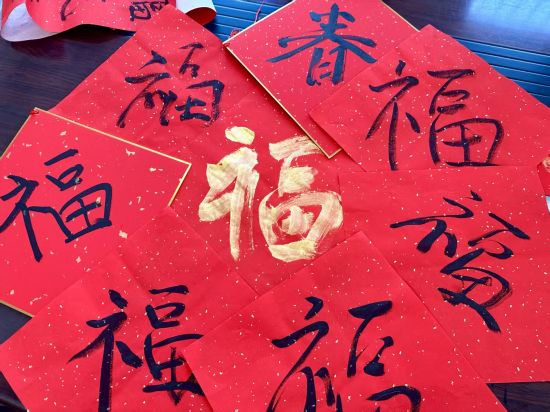 福
春
福
福
福
福
福
福
福